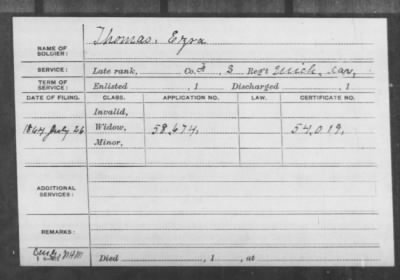 NAME OF SOLDIER: Thomas, Ezra
SERVICE: Late rank, Co. F, 3 Reg't Mich. Cav.
TERM OF SERVICE: Enlisted , 1 Discharged , 1
DATE OF FILING. CLASS. APPLICATION NO. LAW. CERTIFICATE NO.
Invalid,
1864 July 26 Widow, 58,674, 54,019,
Minor,
ADDITIONAL SERVICES:
REMARKS:
Died , 1 , at